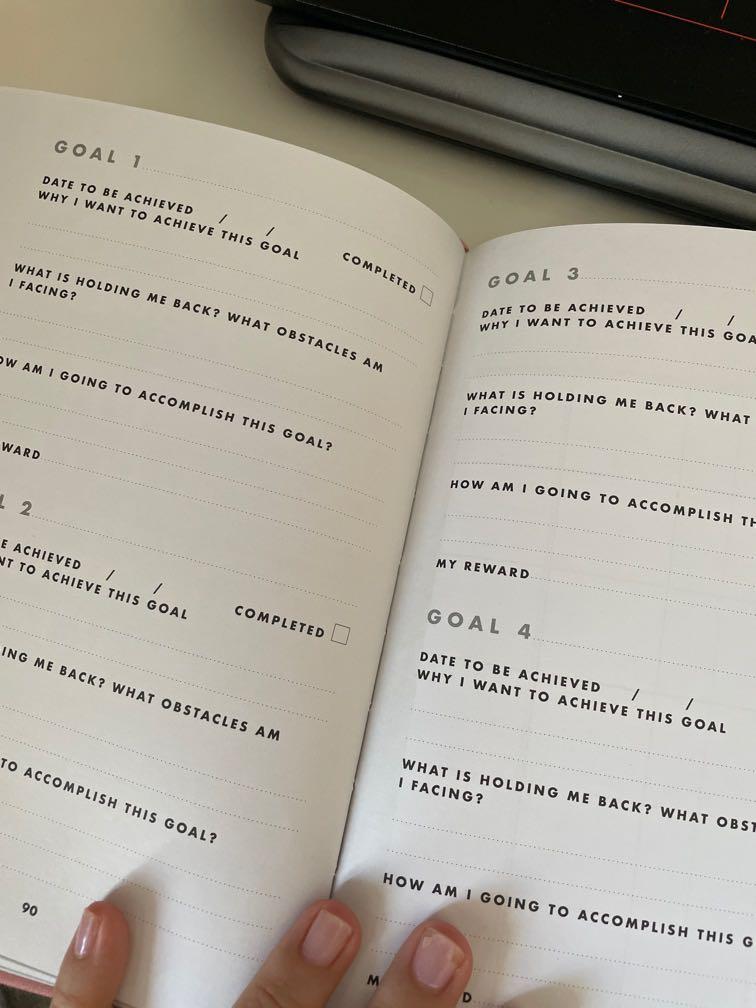 GOAL 1
DATE TO BE ACHIEVED / /
WHY I WANT TO ACHIEVE THIS GOAL
COMPLETED
WHAT IS HOLDING ME BACK? WHAT OBSTACLES AM
I FACING?
OW AM I GOING TO ACCOMPLISH THIS GOAL?
WARD
L 2
E ACHIEVED / /
NT TO ACHIEVE THIS GOAL
COMPLETED
ING ME BACK? WHAT OBSTACLES AM
TO ACCOMPLISH THIS GOAL?
90
GOAL 3
DATE TO BE ACHIEVED / /
WHY I WANT TO ACHIEVE THIS GOA
WHAT IS HOLDING ME BACK? WHAT
I FACING?
HOW AM I GOING TO ACCOMPLISH TH
MY REWARD
GOAL 4
DATE TO BE ACHIEVED / /
WHY I WANT TO ACHIEVE THIS GOAL
WHAT IS HOLDING ME BACK? WHAT OBST
I FACING?
HOW AM I GOING TO ACCOMPLISH THIS G
M D